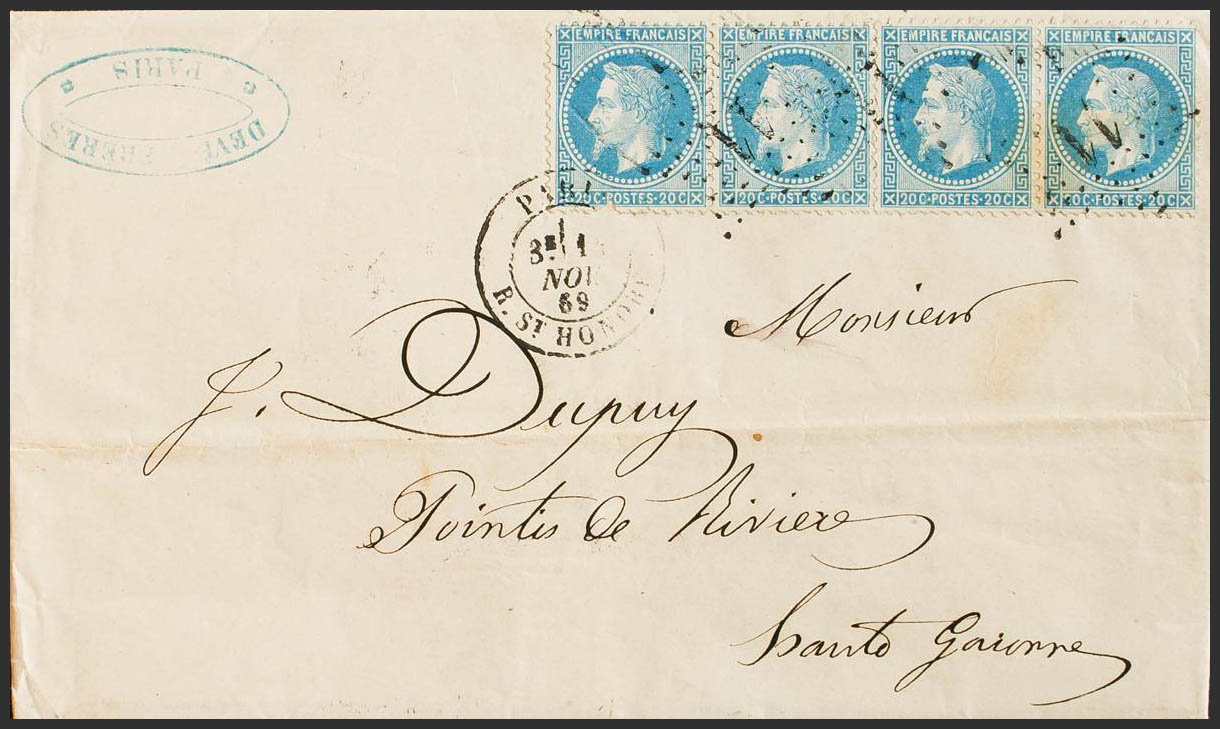 EMPIRE FRANCAIS EMPIRE FRANCAIS EMPIRE FRANCAIS EMPIRE FRANCAIS
20C·POSTES·20C 20C·POSTES·20C 20C·POSTES·20C 20C·POSTES·20C
FRERES
PARIS
PARI
3E
NOV
69
R. ST HONORÉ
Monsieur
J. Dupuy
Pointis de Riviere
haute Garonne